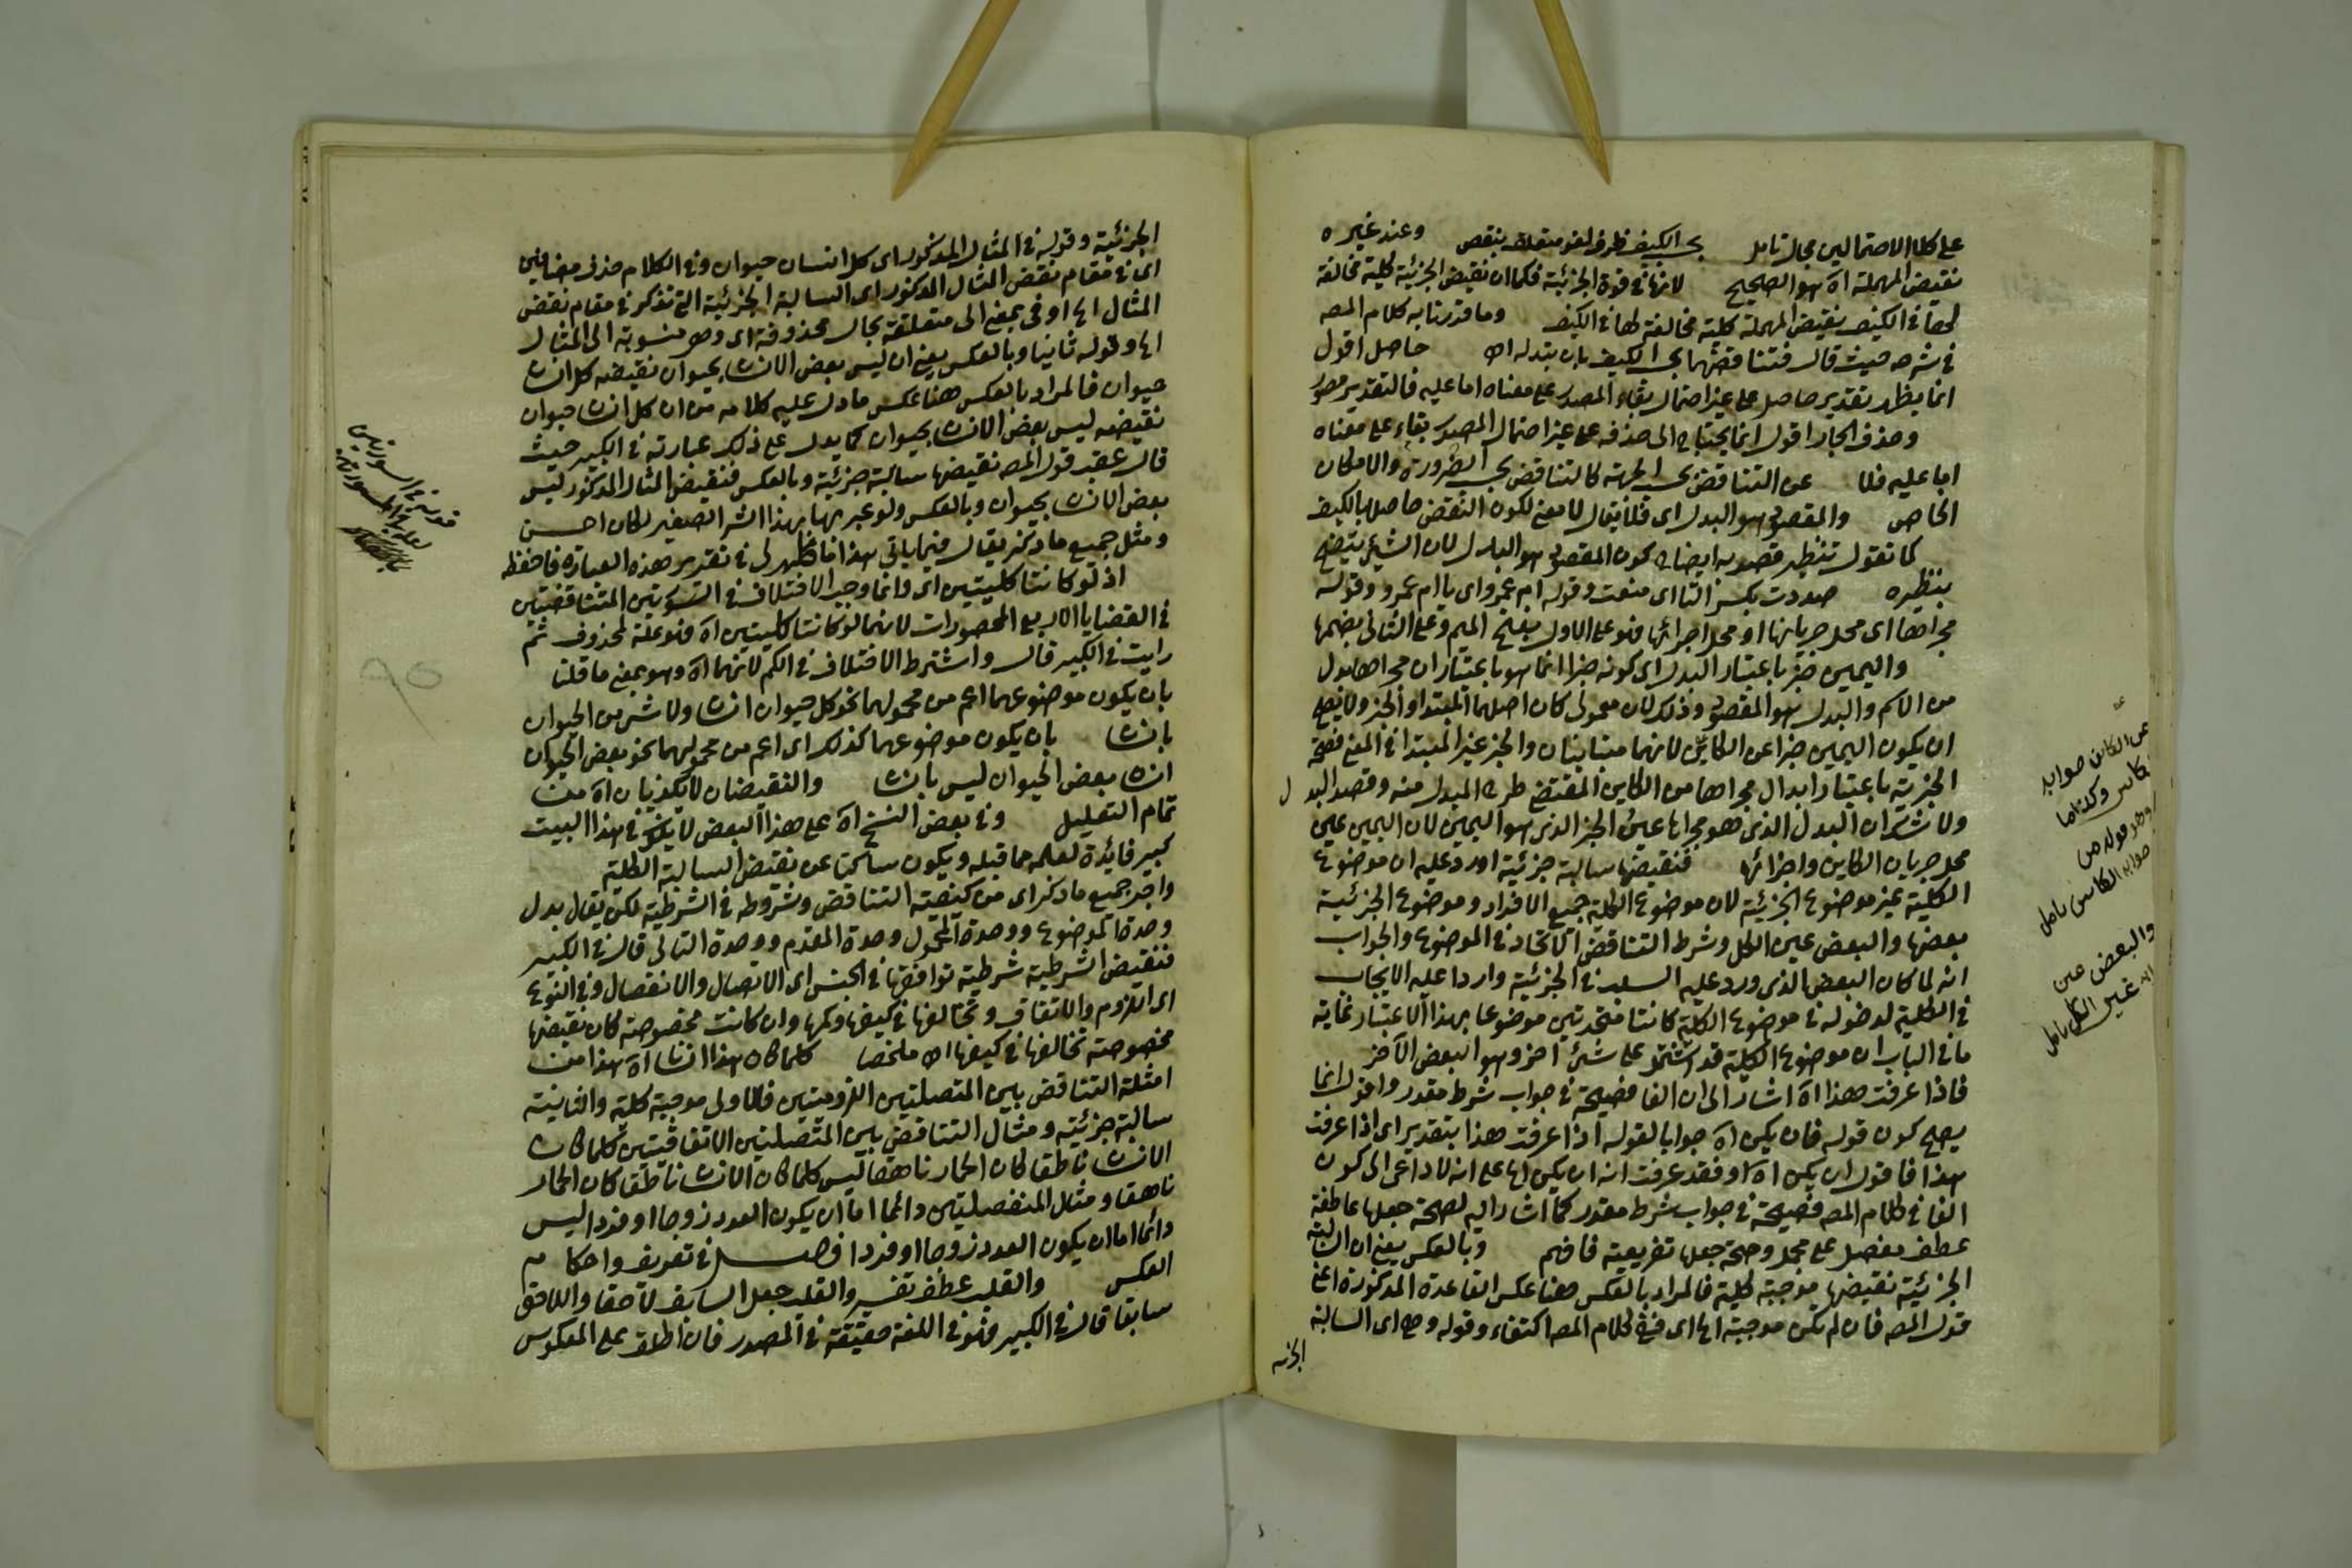 على كلا الاحتمالين محال تامل بحسب الكيف ظرف لغو متعلق بنقض وعند غيره
نقيض المهملة اه هو الصحيح لانها في قوة الجزئية فكما ان نقيض الجزئية كلية مخالفة
لها في الكيف نقيض المهملة كلية مخالفة لها في الكيف وما قدرنا به كلام المص
في شرحه حيث قال فتناقضها بحسب الكيف بان تبدله اه حاصل اقول
انما يظهر تقدير حاصل على غير احتمال بقاء المصدر على معناه اما عليه فالتقدير
وحذف الجار اقول انما يحتاج الى حذفه على غير احتمال المصدر بقاء على معناه
اما عليه فلا عن التناقض بحسب الجهة كالتناقض بحسب الضرورة والامكان
الخاص والمقصود هو البدل اى فلا يقال لا معنى لكون النقض حاصلا بالكيف
كما تقول تنظير قصد به ايضاح كون المقصود هو البدل لان الشيء يتضح
بنظيره صددت بكسر التا اى منعت وقوله ام عمرو اى يا ام عمرو وقوله
مجراها اى محل جريانها او محل اجرائها فهو على الاول بفتح الميم وعلى الثاني بضمها
واليمين خبر باعتبار البدل اى كونه خبرا انما هو باعتبار ان مجراها بدل
من الاسم والبدل هو المقصود وذلك لان معمولى كان اصلهما المبتدا والخبر ولا يصح
ان يكون اليمين خبرا عن الكاس لانهما متباينان والخبر عين المبتدا في المعنى فصحة
الخبرية باعتبار ابدال مجراها من الكاس المقتضى طرح المبدل منه وقصد البدل
ولا شك ان البدل الذى هو مجراها عين الخبر الذى هو اليمين لان اليمين عين
محل جريان الكاس واجرائها فنقيضها سالبة جزئية اورد عليه ان موضوع
الكلية غير موضوع الجزئية لان موضوع الكلية جميع الافراد وموضوع الجزئية
بعضها والبعض عين الكل وشرط التناقض الاتحاد في الموضوع والجواب
انه لما كان البعض الذى ورد عليه السلب في الجزئية واردا عليه الايجاب
في الكلية لدخوله في موضوع الكلية كانتا متحدتين موضوعا بهذا الاعتبار غاية
ما في الباب ان موضوع الكلية قد اشتمل على شئ اخر وهو البعض الآخر
فاذا عرفت هذا اه اشار الى ان الفا فصيحة في جواب شرط مقدر واقول انما
يصح كون قوله فان يكن اه جوابا لقوله اذا عرفت هذا بتقدير اى اذا عرفت
هذا فاقول ان يكن اه او فقد عرفت انه ان يكن اه على انه لا داعى الى كون
الفا في كلام المص فصيحة في جواب شرط مقدر كما اشار اليه لصحة جعلها عاطفة
عطف مفصل على مجمل وصحة جعلها تفريعية فافهم وبالعكس يعنى ان السالبة
الجزئية نقيضها موجبة كلية فالمراد بالعكس هنا عكس القاعدة المذكورة اعنى
قول المص فان لم تكن موجبة اه اى ففى كلام المص اكتفاء وقوله وهى اى السالبة
الجزئية
عن الكاس صوابه
والبعض عين
غير الكل تامل
الجزئية وقوله في المثال المذكور اى كل انسان حيوان وفي الكلام حذف مضافين
اى في مقام نقض المثال المذكور اى السالبة الجزئية التى تذكر في مقام نقض
المثال اه او في بمعنى الى متعلقة بحال محذوفة اى وهى منسوبة الى المثال
اه وقوله ثانيا وبالعكس يعنى ان ليس بعض الانسان بحيوان نقيضه كل انسان
حيوان فالمراد بالعكس هنا عكس ما دل عليه كلامه من ان كل انسان حيوان
نقيضه ليس بعض الانسان بحيوان كما يدل على ذلك عبارته في الكبير حيث
قال عقب قول المص نقيضها سالبة جزئية وبالعكس فنقيض المثال المذكور ليس
بعض الانسان بحيوان وبالعكس ولو عبر بها بهذا الشرح الصغير لكان احسن
ومثل جميع ما ذكر يقال فيما ياتي هذا ما ظهر لى في تقدير هذه العبارة فاحفظه
اذ لو كانتا كليتين اى وانما وجب الاختلاف في السورتين المتناقضتين
في القضايا الاربع المحصورات لانهما لو كانتا كليتين اه فهو علة لمحذوف ثم
رايت في الكبير قال واشترط الاختلاف في الكم لانهما اه وهو بمعنى ما قلنا
بان يكون موضوعهما اعم من محمولهما نحو كل حيوان انسان ولا شئ من الحيوان
بانسان بان يكون موضوعهما كذلك اى اعم من محمولهما نحو بعض الحيوان
انسان بعض الحيوان ليس بانسان والنقيضان لا يكذبان اه من
تمام التعليل وفي بعض النسخ اه على هذا البعض لا يكون في هذا البيت
كبير فايدة لعلمه مما قبله ويكون ساكتا عن نقيض السالبة الكلية
واجر جميع ما ذكر اى من كيفية التناقض وشروطه في الشرطية لكن يقال بدل
وحدة الموضوع ووحدة المحمول وحدة المقدم ووحدة التالى قال في الكبير
فنقيض الشرطية شرطية توافقها في الجنس اى الاتصال والانفصال وفي النوع
اى اللزوم والاتفاق وتخالفها في كيفها وكمها وان كانت مخصوصة كان نقيضها
مخصوصة تخالفها في كيفها اه ملخصا كلما كان هذا انسانا اه هذا من
امثلة التناقض بين المتصلتين اللزوميتين فالاولى موجبة كلية والثانية
سالبة جزئية ومثال التناقض بين المتصلتين الاتفاقيتين كلما كان
الانسان ناطقا كان الحمار ناهقا ليس كلما كان الانسان ناطقا كان الحمار
ناهقا ومثال المنفصلتين دائما اما ان يكون العدد زوجا او فردا ليس
دائما اما ان يكون العدد زوجا او فردا فصل في تعريف واحكام
العكس والقلب عطف تفسير والقلب جعل السابق لاحقا واللاحق
سابقا قال في الكبير فهو في اللغة حقيقة في المصدر فان اطلق على المعكوس